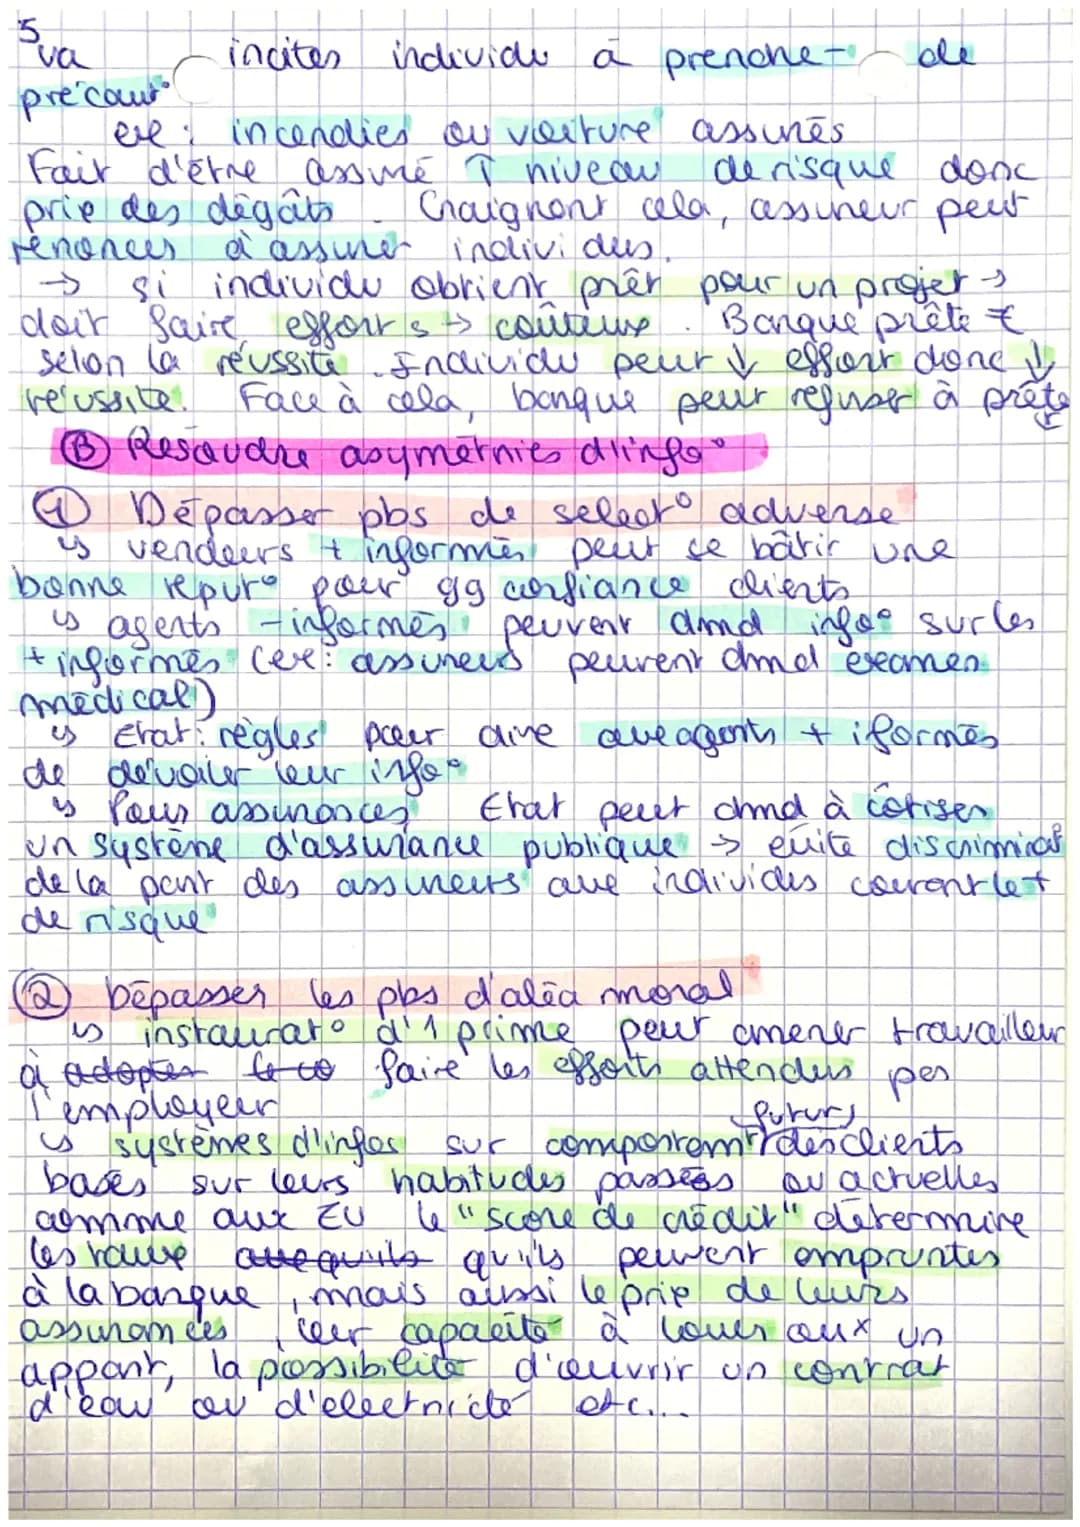 5
va incites individu à prendre - de
précaut°
exe : incendies ou voiture assurés
Fait d'être assuré ↑ niveau de risque donc
prix des dégâts. Craignant cela, assureur peut
renoncer à assurer individus.
→ si individu obtient prêt pour un projet →
doit faire efforts → coûteux. Banque prête €
selon la réussite. Individu peut ↓ effort donc ↓
réussite. Face à cela, banque peut refuser à prêter
(B) Résoudre asymétries d'info°
(1) Dépasser pbs de select° adverse
↳ vendeurs + informés peut se bâtir une
bonne réput° pour gg confiance clients
↳ agents - informés peuvent dmd info° sur les
+ informés (exe : assureurs peuvent dmd examen
médical)
↳ Etat : règles pour dire aux agents + iformés
de dévoiler leur info°
↳ Pour assurances Etat peut dmd à cotiser
un système d'assurance publique → évite discriminat°
de la part des assureurs aux individus courant le +
de risque
(2) Dépasser les pbs d'aléa moral
↳ instaurat° d'1 prime peut amener travailleur
à adopter le co faire les efforts attendus par
l'employeur
futurs
↳ systèmes d'infos sur comportemt des clients
basés sur leurs habitudes passées ou actuelles
comme aux EU le "score de crédit" détermine
les taux auquils qu'ils peuvent empruntes
à la banque, mais aussi le prix de leurs
assurances, leur capacité à louer aux un
appart, la possibilité d'ouvrir un contrat
d'eau ou d'électricité etc...